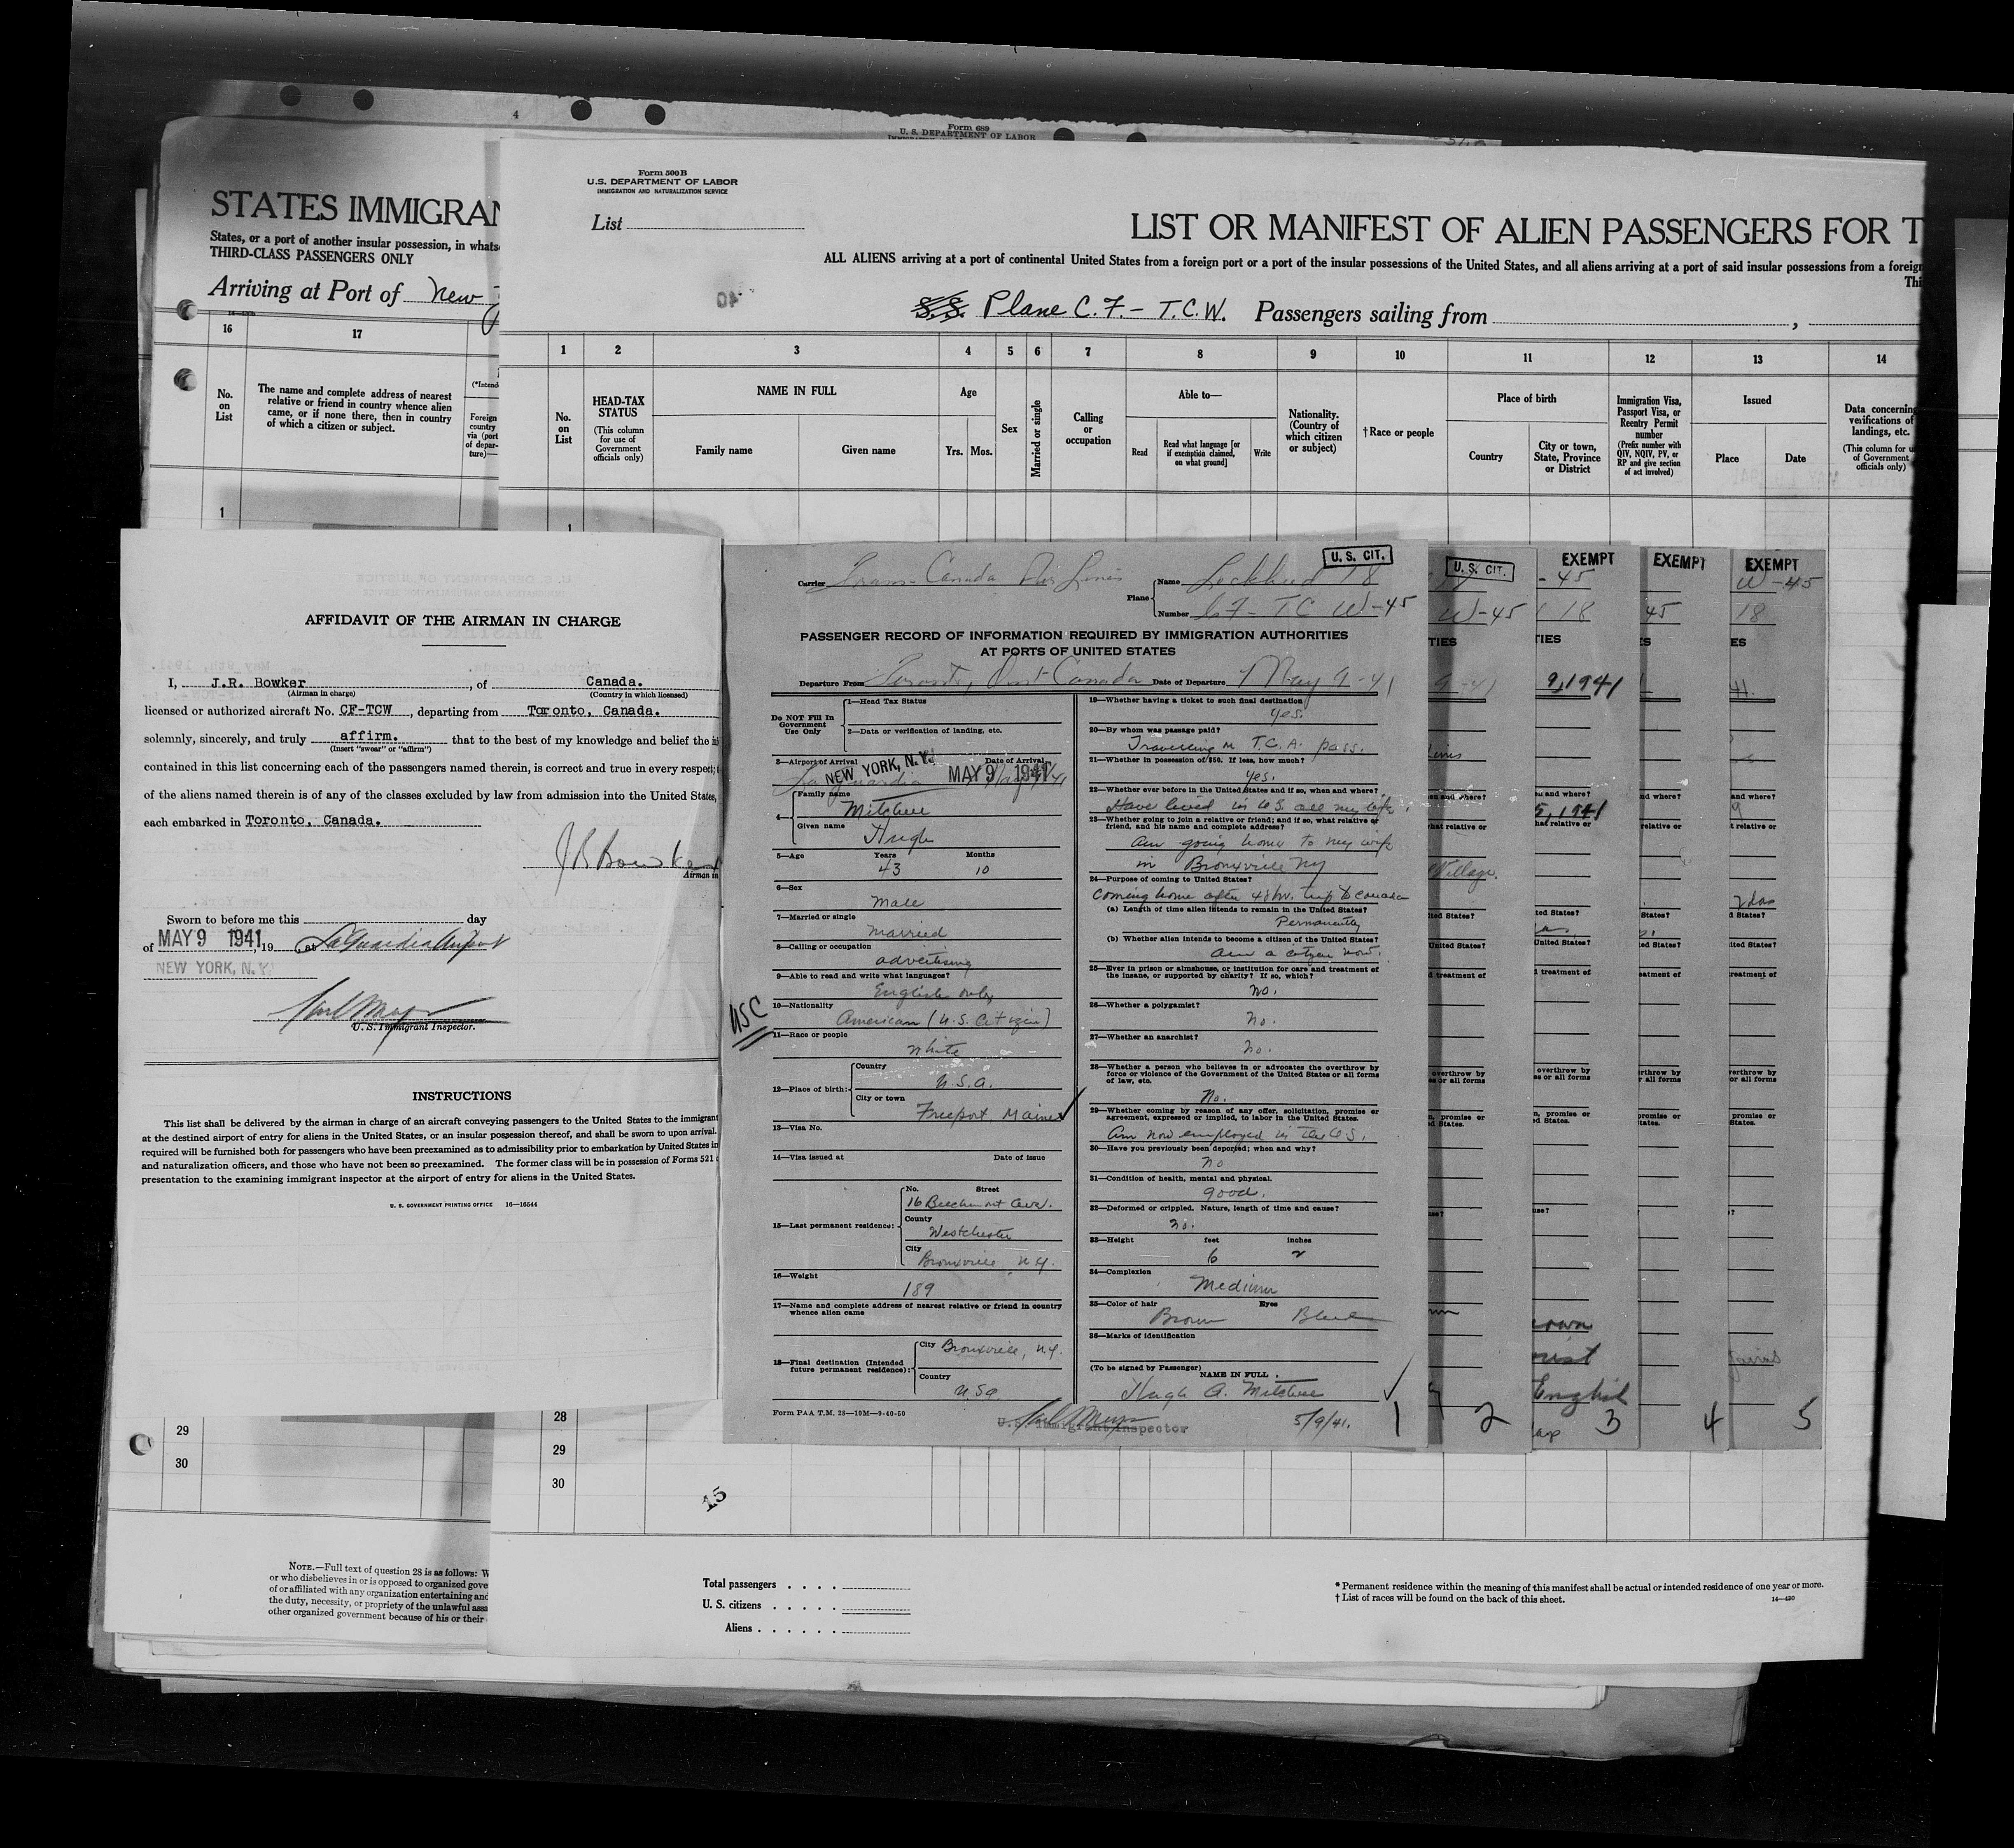 4
Form 689
U. S. DEPARTMENT OF LABOR
STATES IMMIGRAN
States, or a port of another insular possession, in whats
THIRD-CLASS PASSENGERS ONLY
Arriving at Port of New
16
17
No.
on
List
The name and complete address of nearest
relative or friend in country whence alien
came, or if none there, then in country
of which a citizen or subject.
(*Intend
Foreign
country
via (port
of depar-
ture)—
1
Form 500 B
U.S. DEPARTMENT OF LABOR
IMMIGRATION AND NATURALIZATION SERVICE
List
LIST OR MANIFEST OF ALIEN PASSENGERS FOR T
ALL ALIENS arriving at a port of continental United States from a foreign port or a port of the insular possessions of the United States, and all aliens arriving at a port of said insular possessions from a foreig
Thi
40
S.S. Plane C.F.- T.C.W. Passengers sailing from
1 2 3 4 5 6 7 8 9 10 11 12 13 14
No.
on
List
HEAD-TAX
STATUS
(This column
for use of
Government
officials only)
NAME IN FULL
Family name Given name
Age
Yrs. Mos.
Sex
Married or single
Calling
or
occupation
Able to—
Read
Read what language [or
if exemption claimed,
on what ground]
Write
Nationality.
(Country of
which citizen
or subject)
†Race or people
Place of birth
Country
City or town,
State, Province
or District
Immigration Visa,
Passport Visa, or
Reentry Permit
number
(Prefix number with
QIV, NQIV, PV, or
RP and give section
of act involved)
Issued
Place Date
Data concerning
verifications of
landings, etc.
(This column for u
of Government
officials only)
1
AFFIDAVIT OF THE AIRMAN IN CHARGE
I, J.R. Bowker, of Canada.
(Airman in charge) (Country in which licensed)
licensed or authorized aircraft No. CF-TCW, departing from Toronto, Canada.
solemnly, sincerely, and truly affirm. that to the best of my knowledge and belief the i
(Insert "swear" or "affirm")
contained in this list concerning each of the passengers named therein, is correct and true in every respect;
of the aliens named therein is of any of the classes excluded by law from admission into the United States,
each embarked in Toronto, Canada.
J R Bowker
Airman in
Sworn to before me this day
of MAY 9 1941, 19 , at LaGuardia Airport
NEW YORK, N.Y.
U.S. Immigrant Inspector.
INSTRUCTIONS
This list shall be delivered by the airman in charge of an aircraft conveying passengers to the United States to the immigrant
at the destined airport of entry for aliens in the United States, or an insular possession thereof, and shall be sworn to upon arrival.
required will be furnished both for passengers who have been preexamined as to admissibility prior to embarkation by United States in
and naturalization officers, and those who have not been so preexamined. The former class will be in possession of Forms 521
presentation to the examining immigrant inspector at the airport of entry for aliens in the United States.
U. S. GOVERNMENT PRINTING OFFICE 16—16544
U. S. CIT.
Carrier Trans-Canada Air Lines
Plane Name Lockheed 18
Number CF-TC W-45
PASSENGER RECORD OF INFORMATION REQUIRED BY IMMIGRATION AUTHORITIES
AT PORTS OF UNITED STATES
Departure From Toronto, Ont Canada Date of Departure May 9-41
Do NOT Fill In
Government
Use Only
1—Head Tax Status
2—Data or verification of landing, etc.
3—Airport of Arrival Date of Arrival
La Guardia NEW YORK, N.Y. MAY 9 1941
Family name
Mitchell
4—
Given name
Hugh
5—Age Years Months
43 10
6—Sex
Male
7—Married or single
Married
8—Calling or occupation
advertising
9—Able to read and write what languages?
English only
10—Nationality
American (U.S. Citizen)
USC
11—Race or people
White
12—Place of birth:
Country
U.S.A.
City or town
Freeport Maine
13—Visa No.
14—Visa issued at Date of issue
15—Last permanent residence:
No. Street
16 Beechmont Ave.
County
Westchester
City
Bronxville, N.Y.
16—Weight
189
17—Name and complete address of nearest relative or friend in country
whence alien came
18—Final destination (Intended
future permanent residence):
City Bronxville, N.Y.
Country
USA
Form PAA T.M. 28—10M—9-40-50
19—Whether having a ticket to such final destination
Yes.
20—By whom was passage paid?
Travelling on T.C.A. pass.
21—Whether in possession of $50. If less, how much?
Yes.
22—Whether ever before in the United States and if so, when and where?
Have lived in US all my life.
23—Whether going to join a relative or friend; and if so, what relative or
friend, and his name and complete address?
Am going home to my wife
in Bronxville NY
24—Purpose of coming to United States?
Coming home after 48 hr. trip to Canada
(a) Length of time alien intends to remain in the United States?
Permanently
(b) Whether alien intends to become a citizen of the United States?
Am a citizen now.
25—Ever in prison or almshouse, or institution for care and treatment of
the insane, or supported by charity? If so, which?
No.
26—Whether a polygamist?
No.
27—Whether an anarchist?
No.
28—Whether a person who believes in or advocates the overthrow by
force or violence of the Government of the United States or all forms
of law, etc.
No.
29—Whether coming by reason of any offer, solicitation, promise or
agreement, expressed or implied, to labor in the United States.
Am now employed in the U.S.
30—Have you previously been deported; when and why?
No
31—Condition of health, mental and physical.
good.
32—Deformed or crippled. Nature, length of time and cause?
no.
33—Height feet inches
6 2
34—Complexion
Medium
35—Color of hair Eyes
Brown Blue
36—Marks of identification
(To be signed by Passenger)
NAME IN FULL
Hugh A. Mitchell
U.S. Immigrant Inspector
5/9/41. 1
U. S. CIT.
W-45
Village.
2
EXEMPT
- 45
18
9, 1941
5, 1941
English
3
EXEMPT
45
4
EXEMPT
W-45
18
41.
5
29
30
28
29
30
15
NOTE.—Full text of question 28 is as follows: W
or who disbelieves in or is opposed to organized gove
of or affiliated with any organization entertaining and
the duty, necessity, or propriety of the unlawful assa
other organized government because of his or their
Total passengers
U. S. citizens
Aliens
* Permanent residence within the meaning of this manifest shall be actual or intended residence of one year or more.
† List of races will be found on the back of this sheet.
14—430